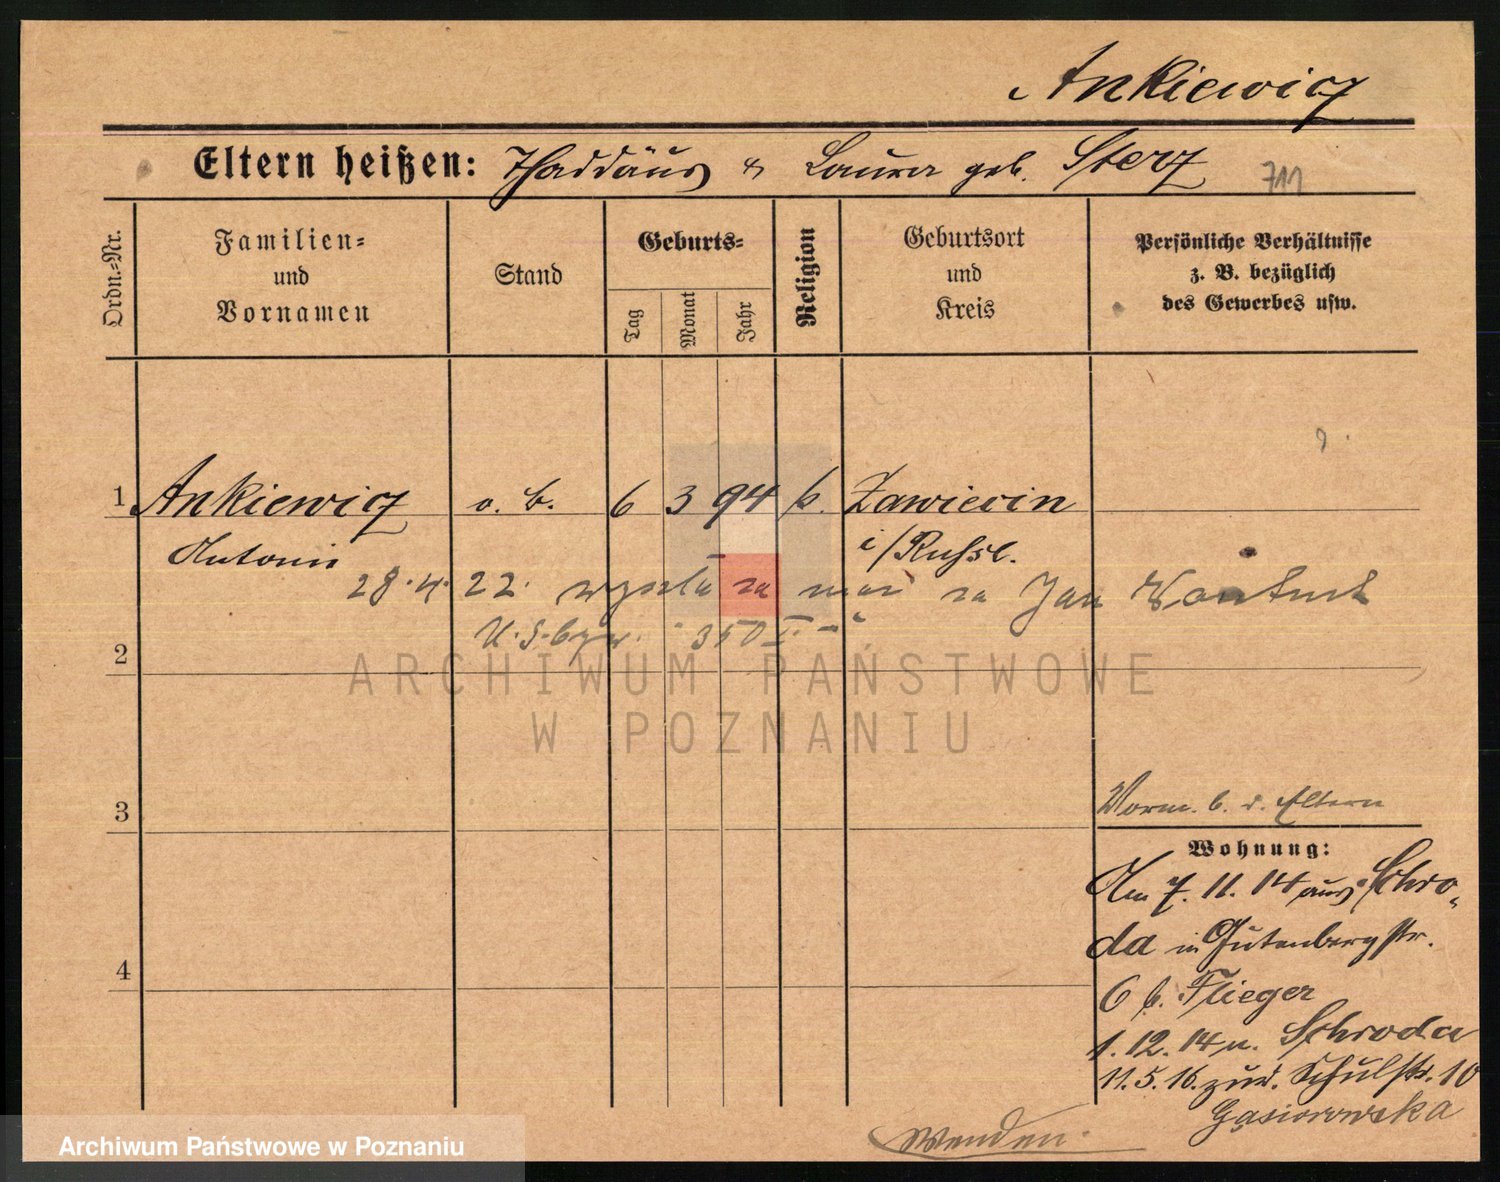 Ankiewicz
Eltern heißen: Thaddäus & Laura geb. Sterz 711
Ordn.-Nr.
Familien-
und
Vornamen
Stand
Geburts-
Tag
Monat
Jahr
Religion
Geburtsort
und
Kreis
Persönliche Verhältnisse
z. B. bezüglich
des Gewerbes usw.
1 Ankiewicz o. b. 6 3 94 k.
Antonie i/Russl.
28.4.22. wyszła za mąż za Jan
350
2
ARCHIWUM PAŃSTWOWE
W POZNANIU
3
Vorm. b. d. Eltern
Wohnung:
Am 7.11.14 aus Schro-
da in Gutenbergstr.
6 b. Flieger
1.12.14 n. Schroda
11.5.16. zur. Schulstr. 10
Gąsiorowska
4
Wenden.
Archiwum Państwowe w Poznaniu